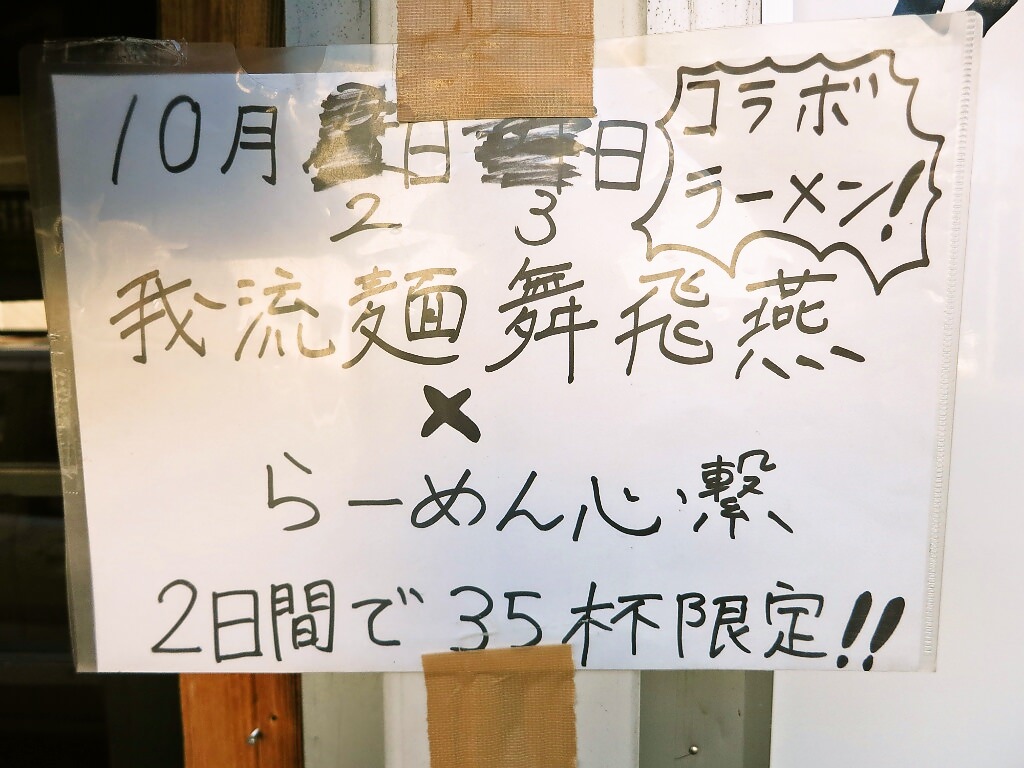 10月 日 日
2 3
コラボ
ラーメン!
我流麺舞飛燕
×
らーめん心繋
2日間で35杯限定!!